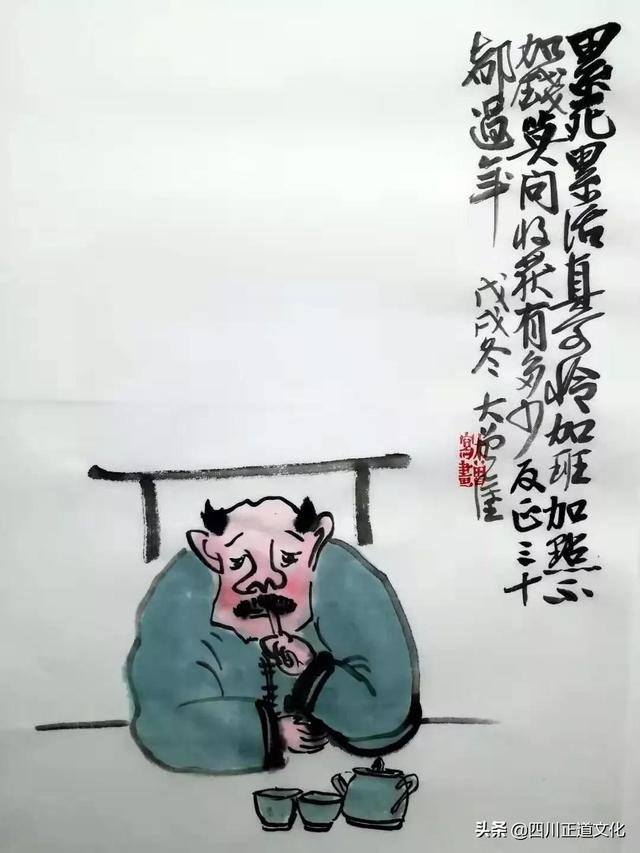 累死累活真可怜加班加點不
加錢莫问收获有多少反正三十
都過年
戊戌冬 大
头条 @四川正道文化